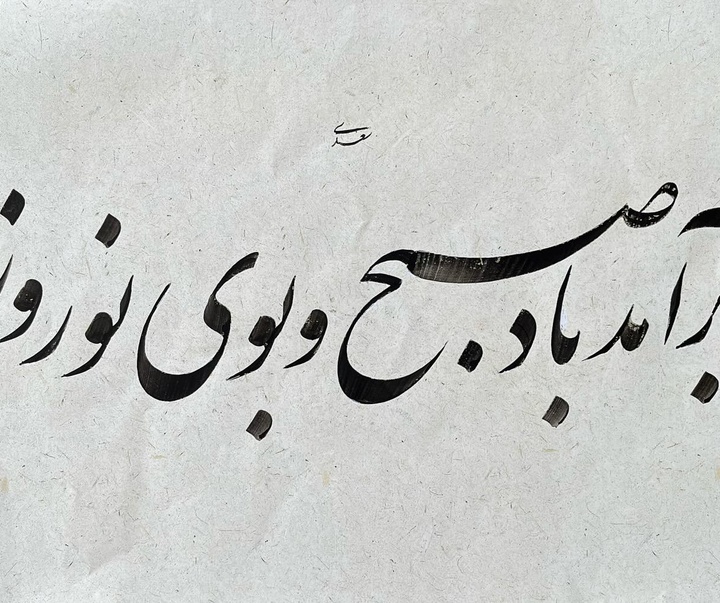 سعدی
برآمد باد صبح و بوی نوروز